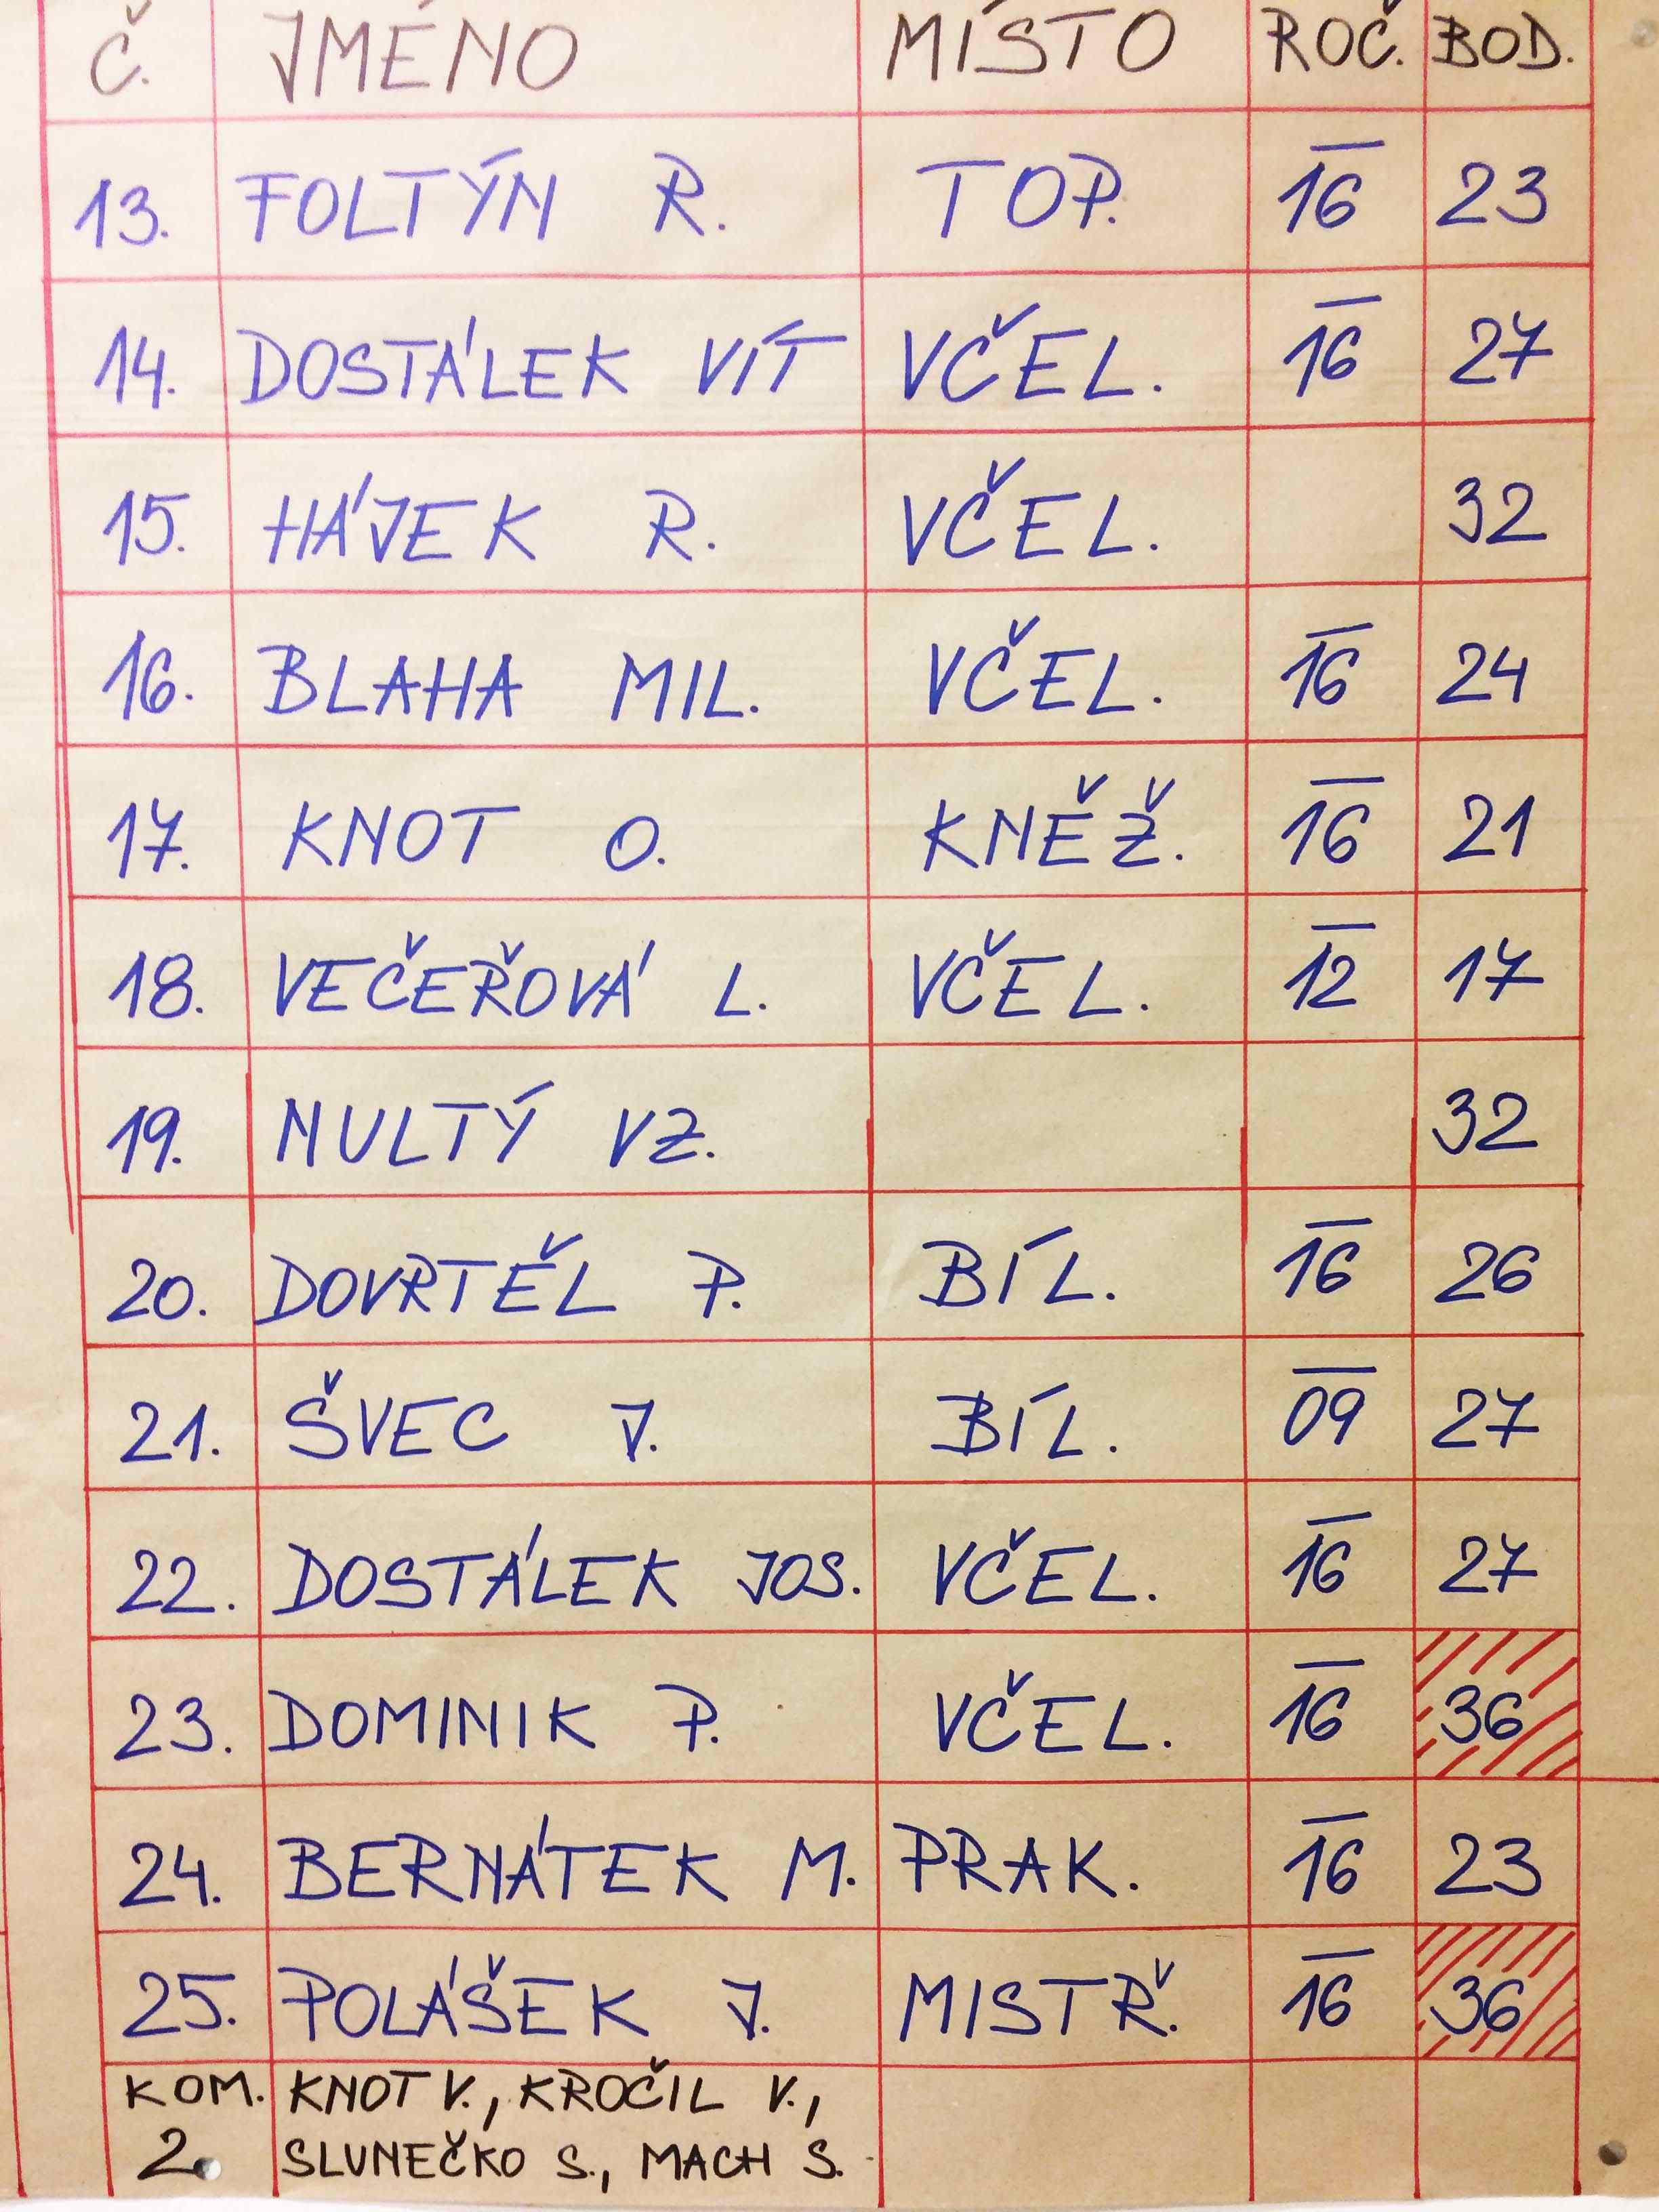 Č. JMÉNO MÍSTO ROČ. BOD.
13. FOLTÝN R. TOP. 16 23
14. DOSTÁLEK VÍT VČEL. 16 27
15. HÁJEK R. VČEL. 32
16. BLAHA MIL. VČEL. 16 24
17. KNOT O. KNĚŽ. 16 21
18. VEČEŘOVÁ L. VČEL. 12 17
19. NULTÝ VZ. 32
20. DOVRTĚL P. BÍL. 16 26
21. ŠVEC J. BÍL. 09 27
22. DOSTÁLEK JOS. VČEL. 16 27
23. DOMINIK P. VČEL. 16 36
24. BERNÁTEK M. PRAK. 16 23
25. POLÁŠEK J. MISTŘ. 16 36
KOM. KNOT V., KROČIL V.,
2. SLUNEČKO S., MACH S.